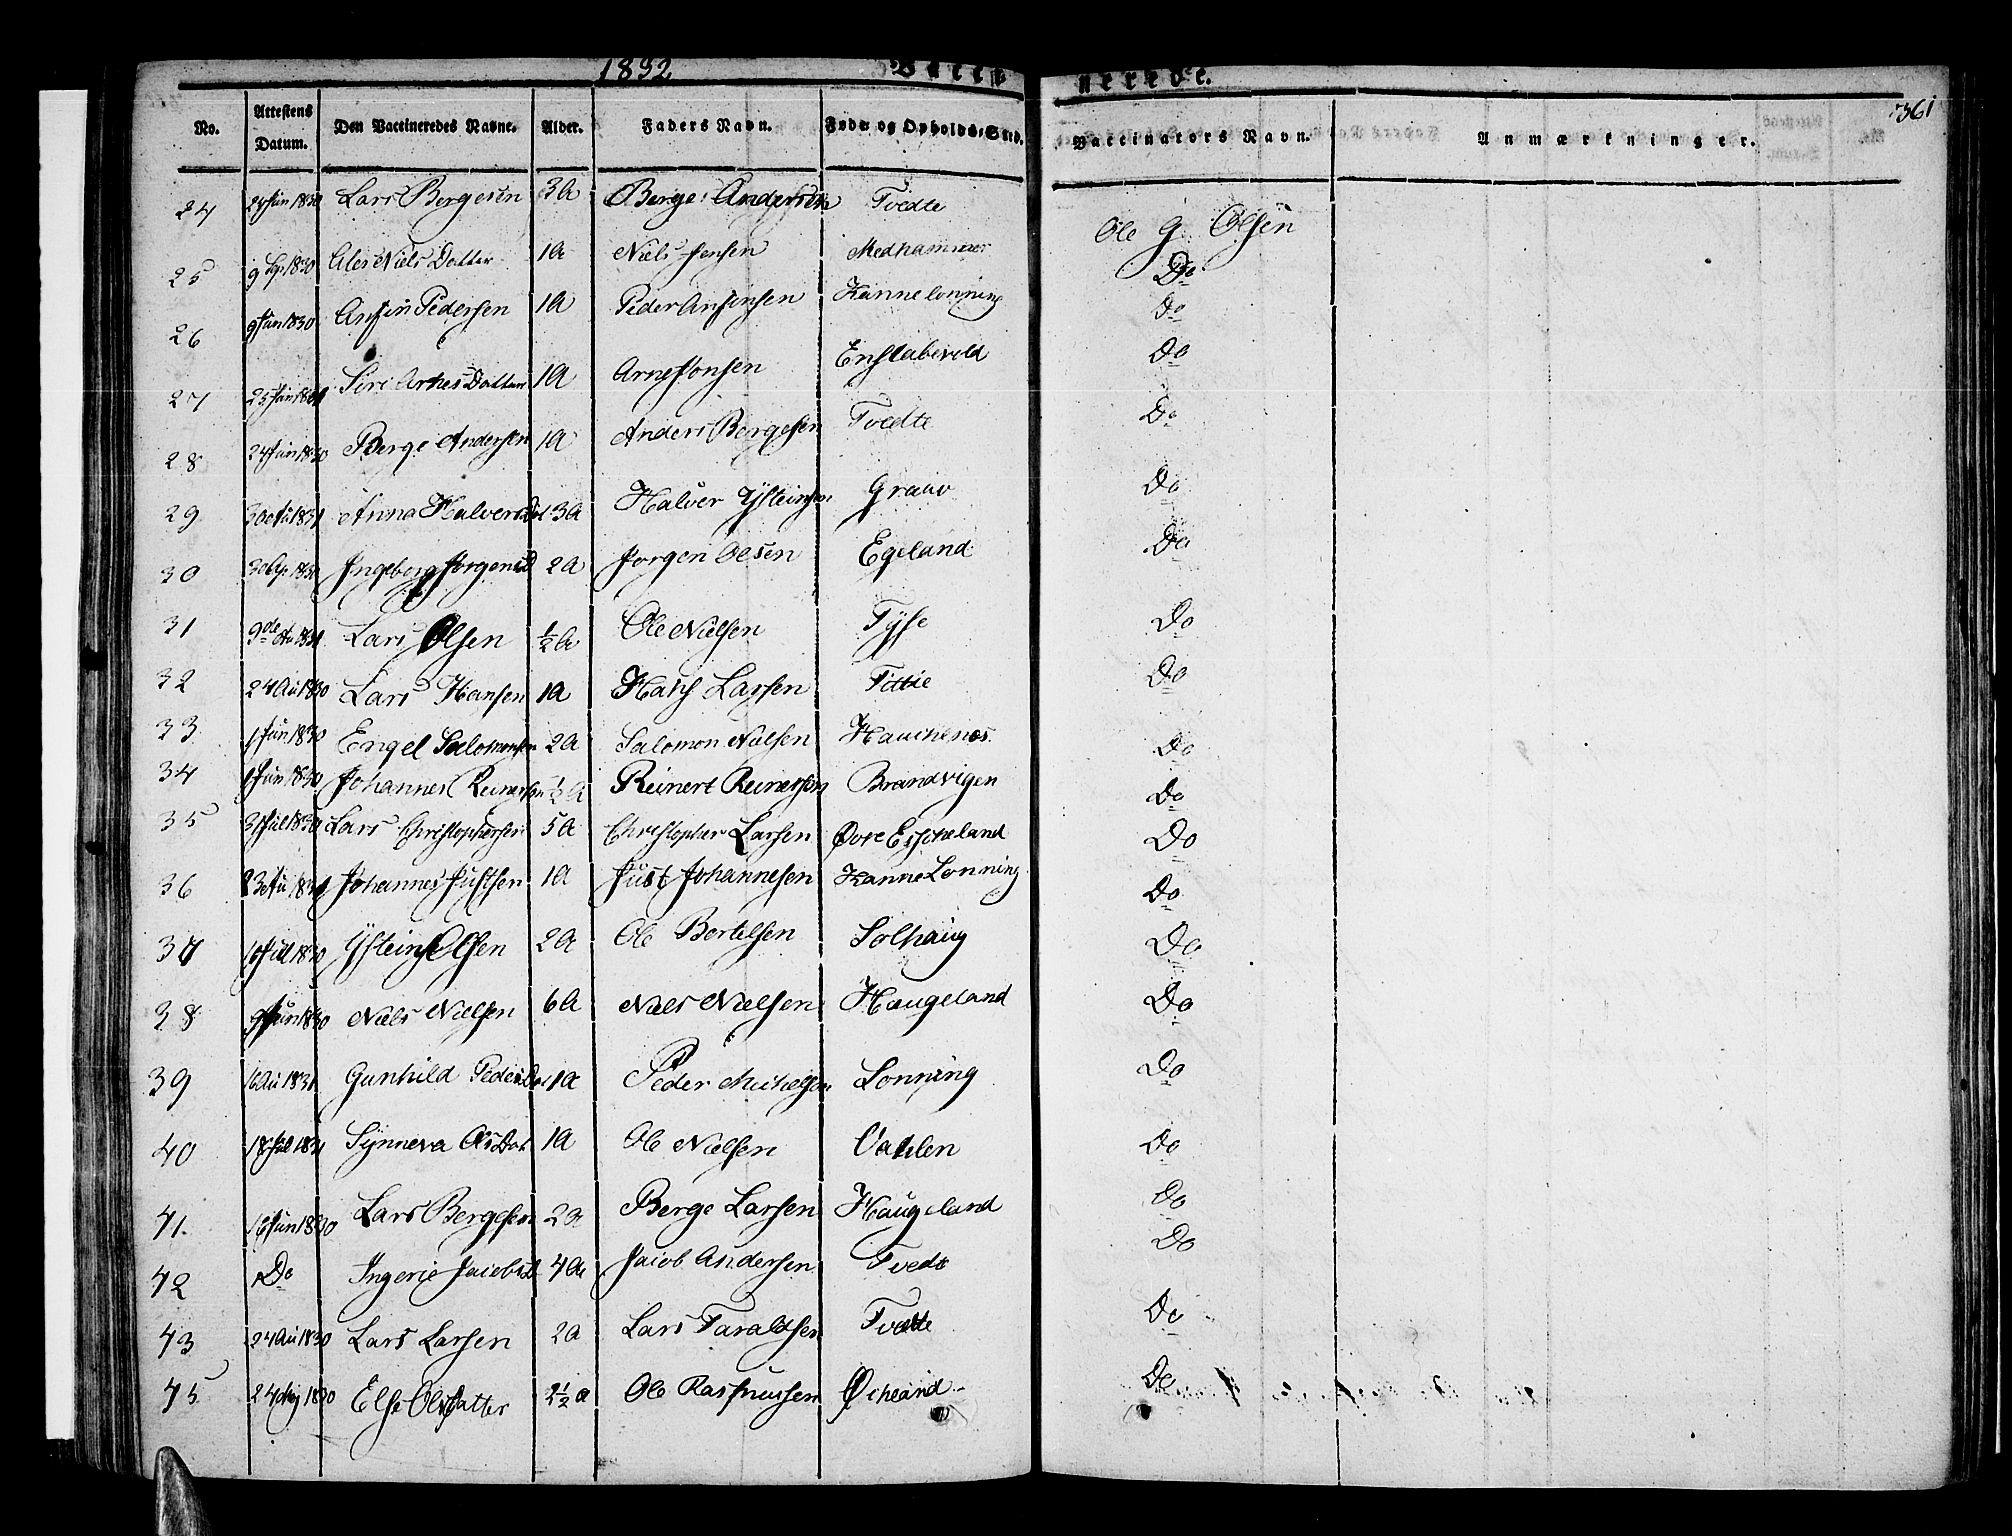 1832 Vacci nerede. 361
No. Attestens Datum. Den Vaccineredes Navne. Alder. Faders Navn. Føde og Opholds-Sted. Vaccinators Navn. Anmærkninger.
24 Lars Bergesen 3a Berge Andersen Tvedte Ole G Olsen
25 9 1830 Ales Niels Datter 1a Niels Jensen Medhammer Do
26 9 Jun 1830 Anfin Pedersen 1a Peder Anfinsen Kannelønning Do
27 25 Jun Siri Arnes Datter 1a Arne Jonsen Do
28 24 Jun 1830 Berge Andersen 1a Anders Bergesen Tvedte Do
29 Anna Halvers Dat 3a Halver Ysteinsen Graue Do
30 Ingeborg Jørgens D 2a Jørgen Olsen Egeland Do
31 9de Au 1831 Lars Olsen ½a Ole Nielsen Tysse Do
32 24 Au 1830 Lars Hansen 1a Hans Larsen Do
33 1 Jun 1830 Engel Salomonsen 2a Salomon Nielsen Do
34 Jun 1830 Johannes Reinertsen ½a Reinert Reinertsen Brandvigen Do
35 31 Jul 1830 Lars Christophersen 5a Christopher Larsen Øvre Do
36 Johannes Justsen 1a Just Johannesen Kanne Lonning Do
37 Jul 1830 Ystein Olsen 2a Ole Bertelsen Solhaug Do
38 9 Jun 1830 Niels Nielsen 6a Niels Nielsen Haugeland Do
39 16 Au 1831 Gunhild Peders Dat 1a Peder Michelsen Lonning Do
40 18 Jul 1831 Synneva Ols Dat 1a Ole Nielsen Do
41. Jun 1830 Lars Bergesen 2a Berge Larsen Haugeland Do
42 Do Ingerie Jacobsd 4a Jacob Andersen Tvedt Do
43 24 Au 1830 Lars Larsen 2a Lars Taraldsen Tvedte Do
45 24 1830 Else Olsdatter 2½a Ole Rasmussen Do